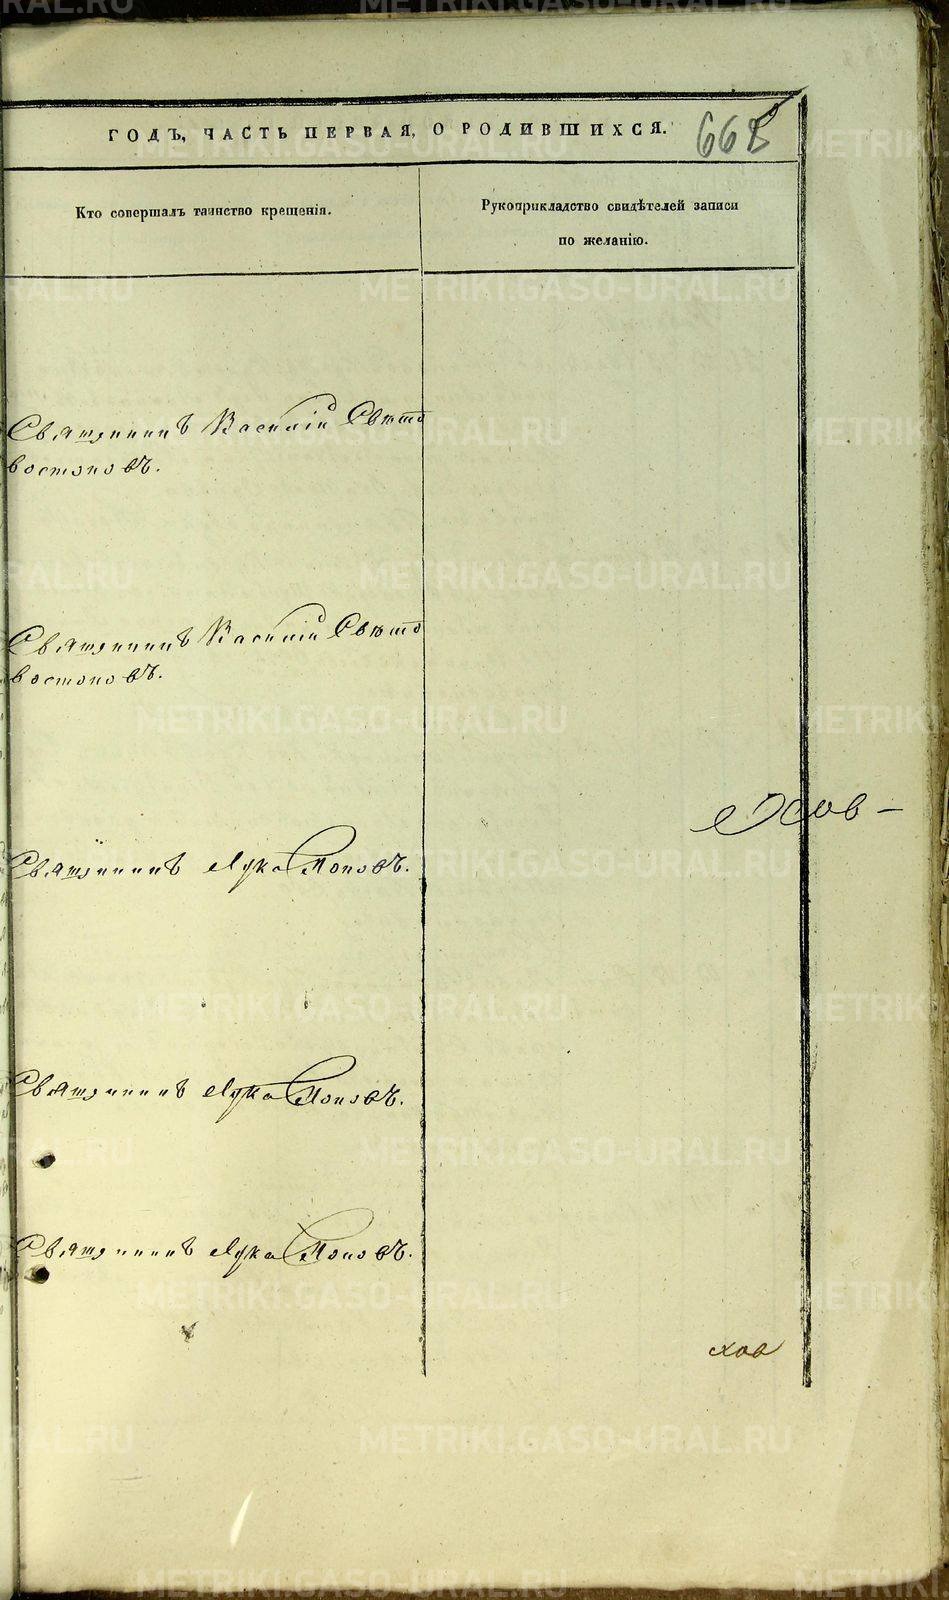 ГОДЪ, ЧАСТЬ ПЕРВАЯ, О РОДИВШИХСЯ.
668
Кто совершалъ таинство крещенія.
Рукоприкладство свидѣтелей записи
по желанію.
Священникъ Василій Свѣто
востоковъ.
Священникъ Василій Свѣто
востоковъ.
Священникъ Лука Поповъ.
Священникъ Лука Поповъ.
Священникъ Лука Поповъ.
METRIKI.GASO-URAL.RU